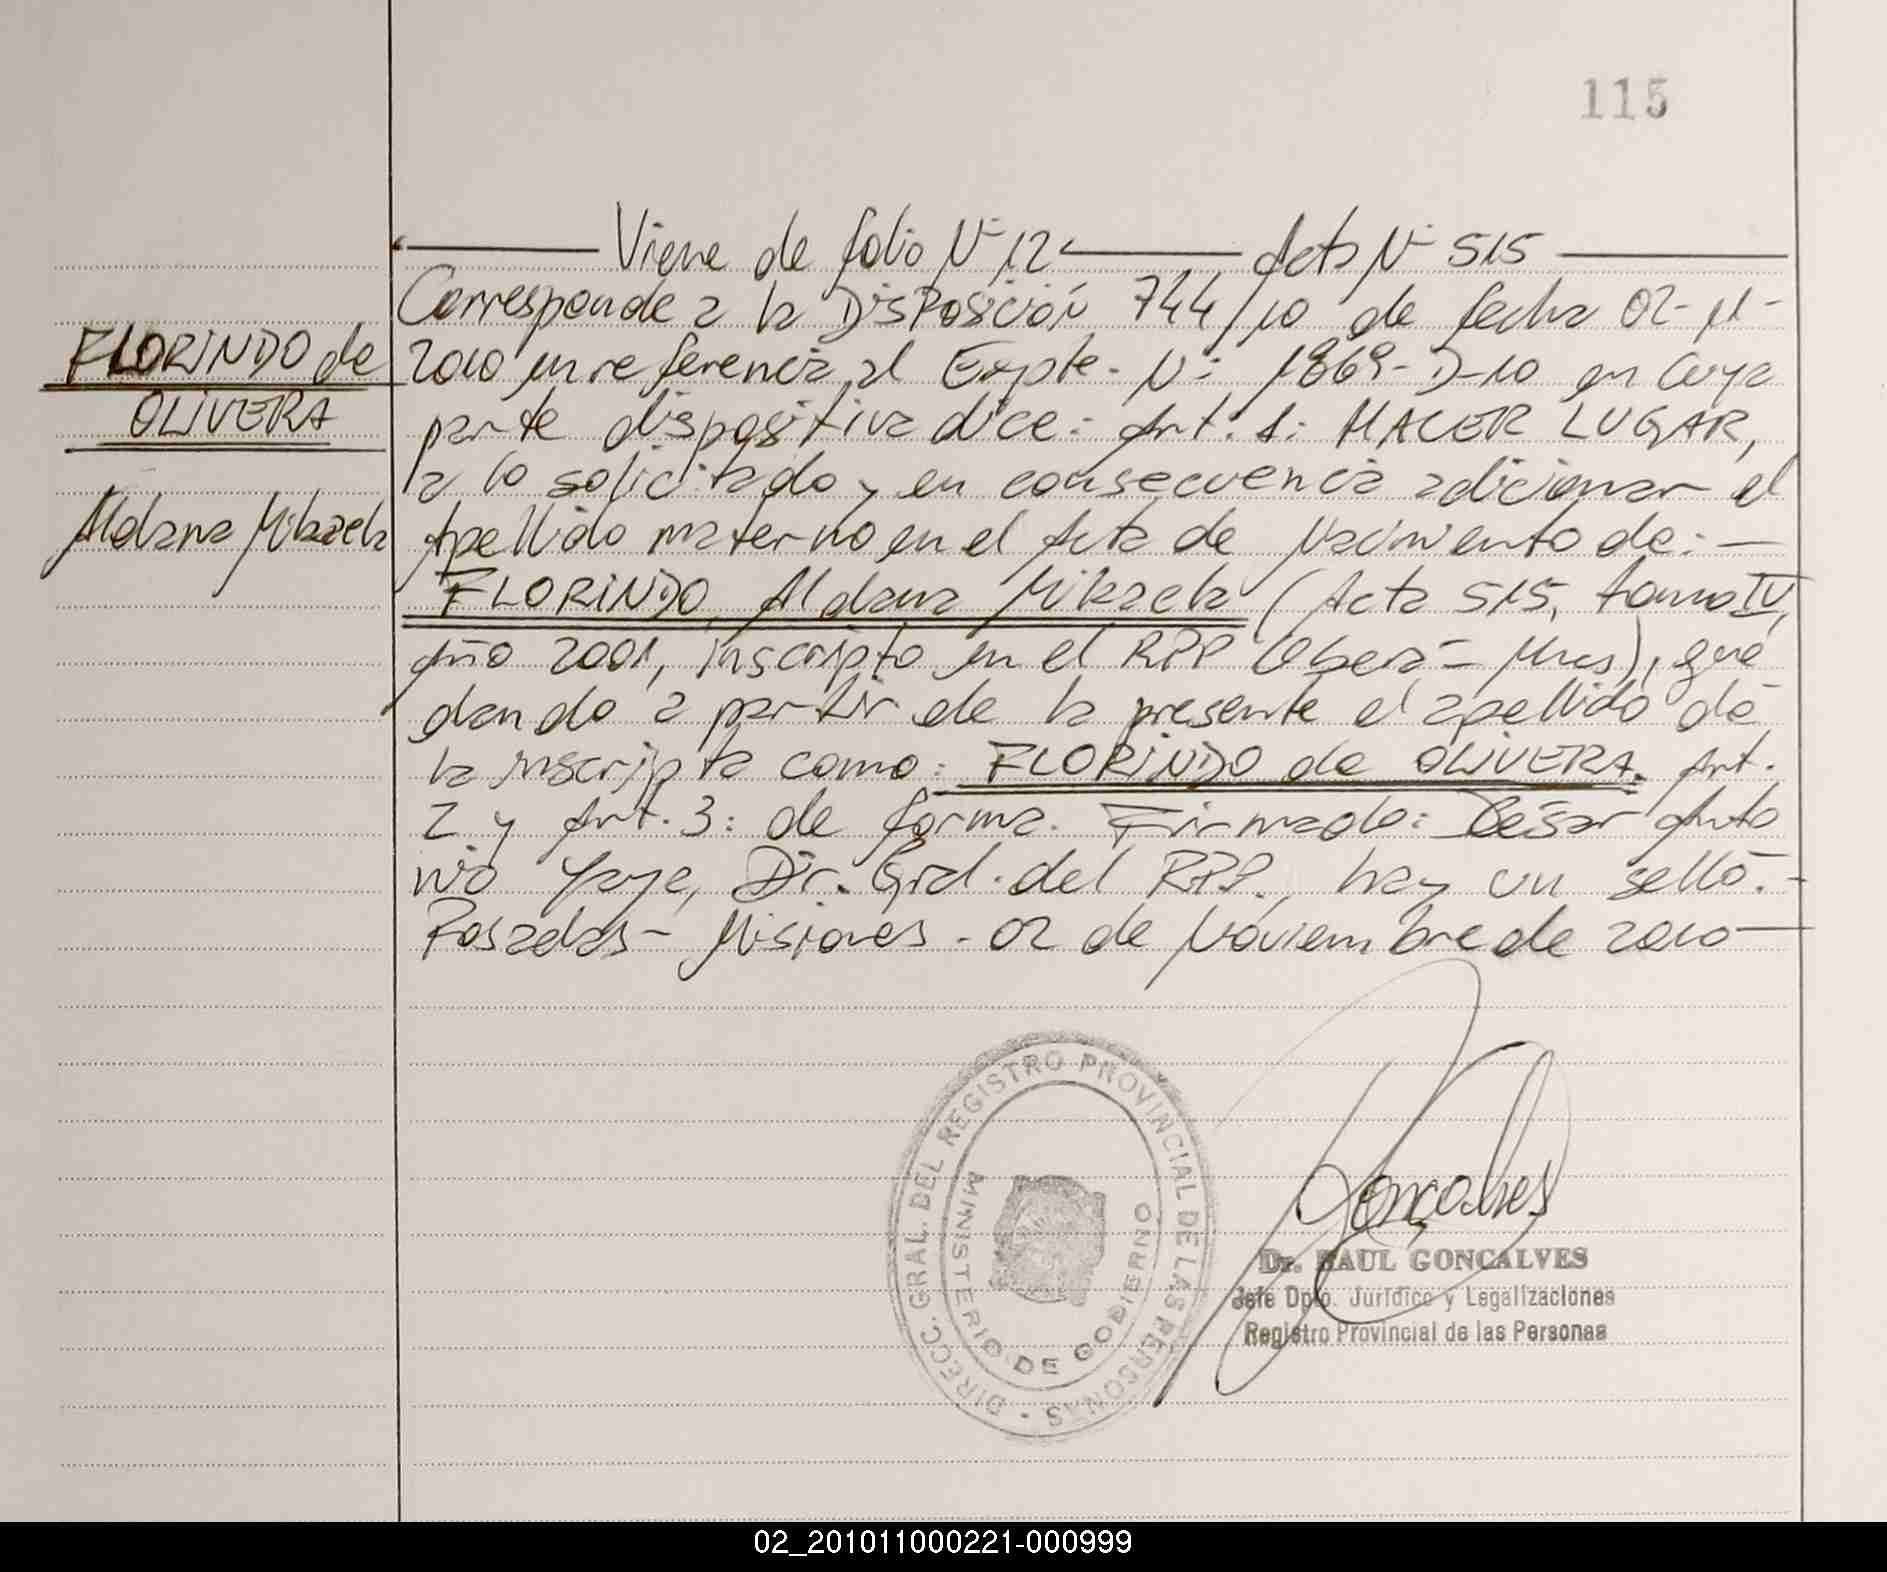 115
Viene de folio Nº 12 Acta Nº 515
Corresponde a la Disposición 744/10 de fecha 02-11-
FLORINDO de
OLIVERA
Aldana Mikaela
2010 en referencia al Expte. Nº 1869-D-10 en cuya
parte dispositiva dice: Art. 1: HACER LUGAR,
a lo solicitado y en consecuencia adicionar el
Apellido materno en el Acta de Nacimiento de: —
FLORINDO, Aldana Mikaela (Acta 515, tomo IV,
año 2001, inscripto en el RPP Oberá - Mnes), que
dando a partir de la presente el apellido de
la inscripta como: FLORINDO de OLIVERA. Art.
2 y Art. 3: de forma. Firmado: César Anto
nio Dir. Gral. del RPP., hay un sello.-
Posadas - Misiones - 02 de Noviembre de 2010 —
DIRECC. GRAL. DEL REGISTRO PROVINCIAL DE LAS PERSONAS -
MINISTERIO DE GOBIERNO
Gonçalves
Dr. RAUL GONCALVES
Jefe Dpto. Jurídico y Legalizaciones
Registro Provincial de las Personas
02_201011000221-000999